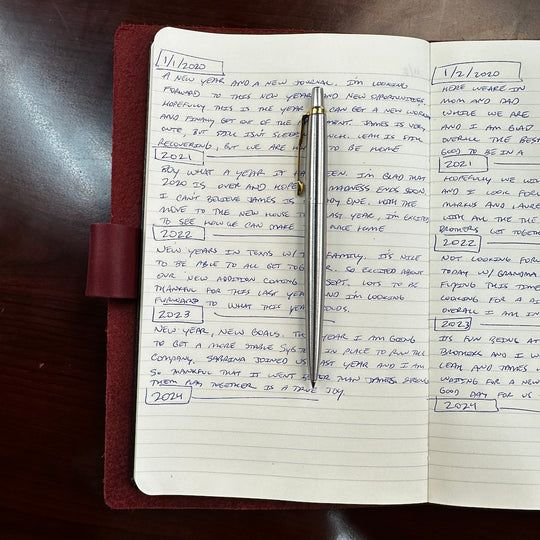 1/1/2020
A NEW YEAR AND A NEW JOURNAL. I'M LOOKING
FORWARD TO THIS NEW YEAR AND NEW OPPORTUNITIES.
HOPEFULLY THIS IS THE YEAR CAN GET A NEW
AND FINALLY GET OUT OF THE MENT. JAMES IS VERY
CUTE, BUT STILL ISN'T SLEEPING MUCH. LEAH IS STILL
RECOVERING, BUT WE ARE TO BE HOME
2021
BOY WHAT A YEAR IT HAS BEEN. I'M GLAD THAT
2020 IS OVER AND HOPE MADNESS ENDS SOON.
I CAN'T BELIEVE JAMES IS ONE. WITH THE
MOVE TO THE NEW HOUSE LAST YEAR, I'M EXCITED
TO SEE HOW WE CAN MAKE PLACE HOME
2022
NEW YEARS IN TEXAS W/ FAMILY. IT'S NICE
TO BE ABLE TO ALL GET TOGETHER. SO EXCITED ABOUT
OUR NEW ADDITION COMING SEPT. LOTS TO BE
THANKFUL FOR THIS LAST YEAR AND I'M LOOKING
FORWARD TO WHAT THIS YEAR HOLDS.
2023
NEW YEAR, NEW GOALS. THIS YEAR I AM GOING
TO GET A MORE STABLE SYSTEM IN PLACE TO RUN THE
COMPANY. SABRINA JOINED US LAST YEAR AND I AM
SO THANKFUL THAT IT WENT BETTER THAN JAMES. SEEING
THEM PLAY TOGETHER IS A TRUE JOY.
2024
1/2/2020
HERE WE ARE IN
MOM AND DAD
WHILE WE ARE
AND I AM GLAD
OVERALL THE BEST
GOOD TO BE IN A
2021
HOPEFULLY WE WI
AND I LOOK FOR
MARKUS AND
WITH ALL THE THE
BROTHERS GET TOGETHE
2022
NOT LOOKING FOR
TODAY W/ GRANDMA
FLYING THIS TIME
LOOKING FOR A
OVERALL I AM IN
2023
IT'S FUN BEING AT
BROTHERS AND I W
LEAH AND JAMES
WAITING FOR A NEW
GOOD DAY FOR US
2024